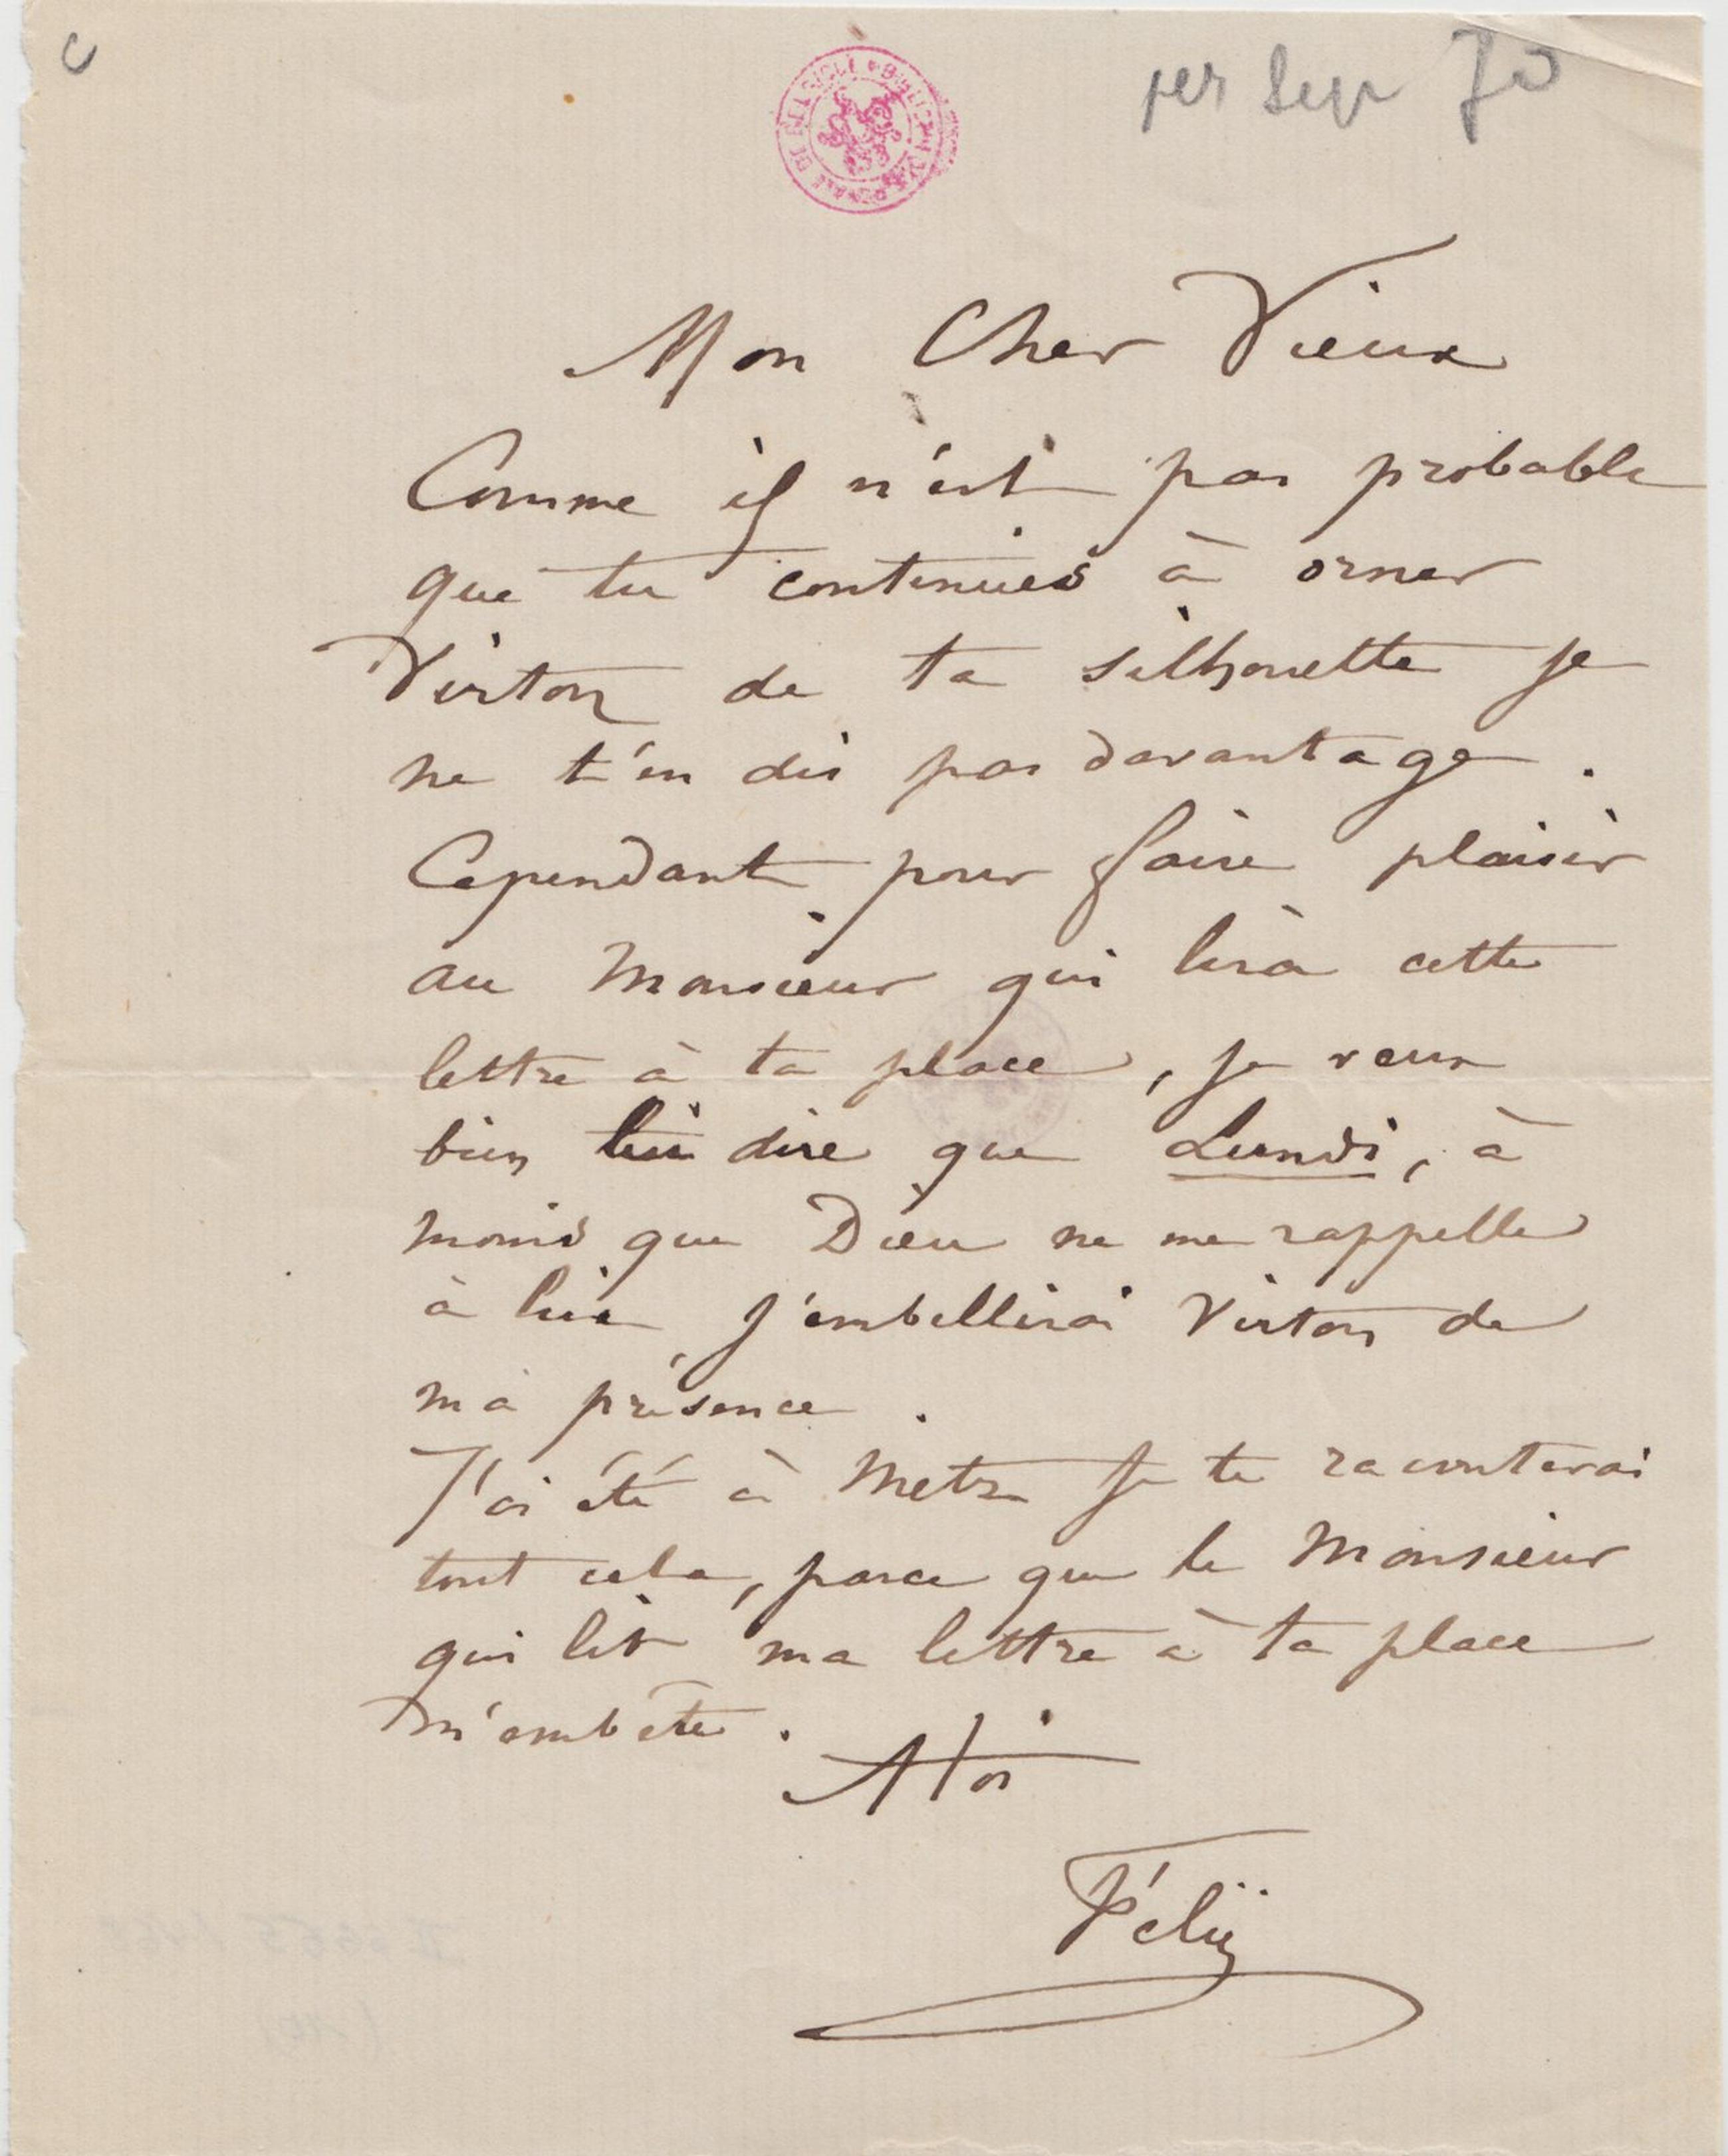 1er Sept 70
Mon Cher Vieux
Comme il n'est pas probable
que tu continues à orner
Virton de ta silhouette je
ne t'en dis pas davantage.
Cependant pour faire plaisir
au Monsieur qui lira cette
lettre à ta place, je veux
bien lui dire que Lundi, à
moins que Dieu ne me rappelle
à lui, j'embellirai Virton de
ma présence.
J'ai été à Metz je te raconterai
tout cela, parce que le Monsieur
qui lit ma lettre à ta place
m'embête.
A toi
Féli